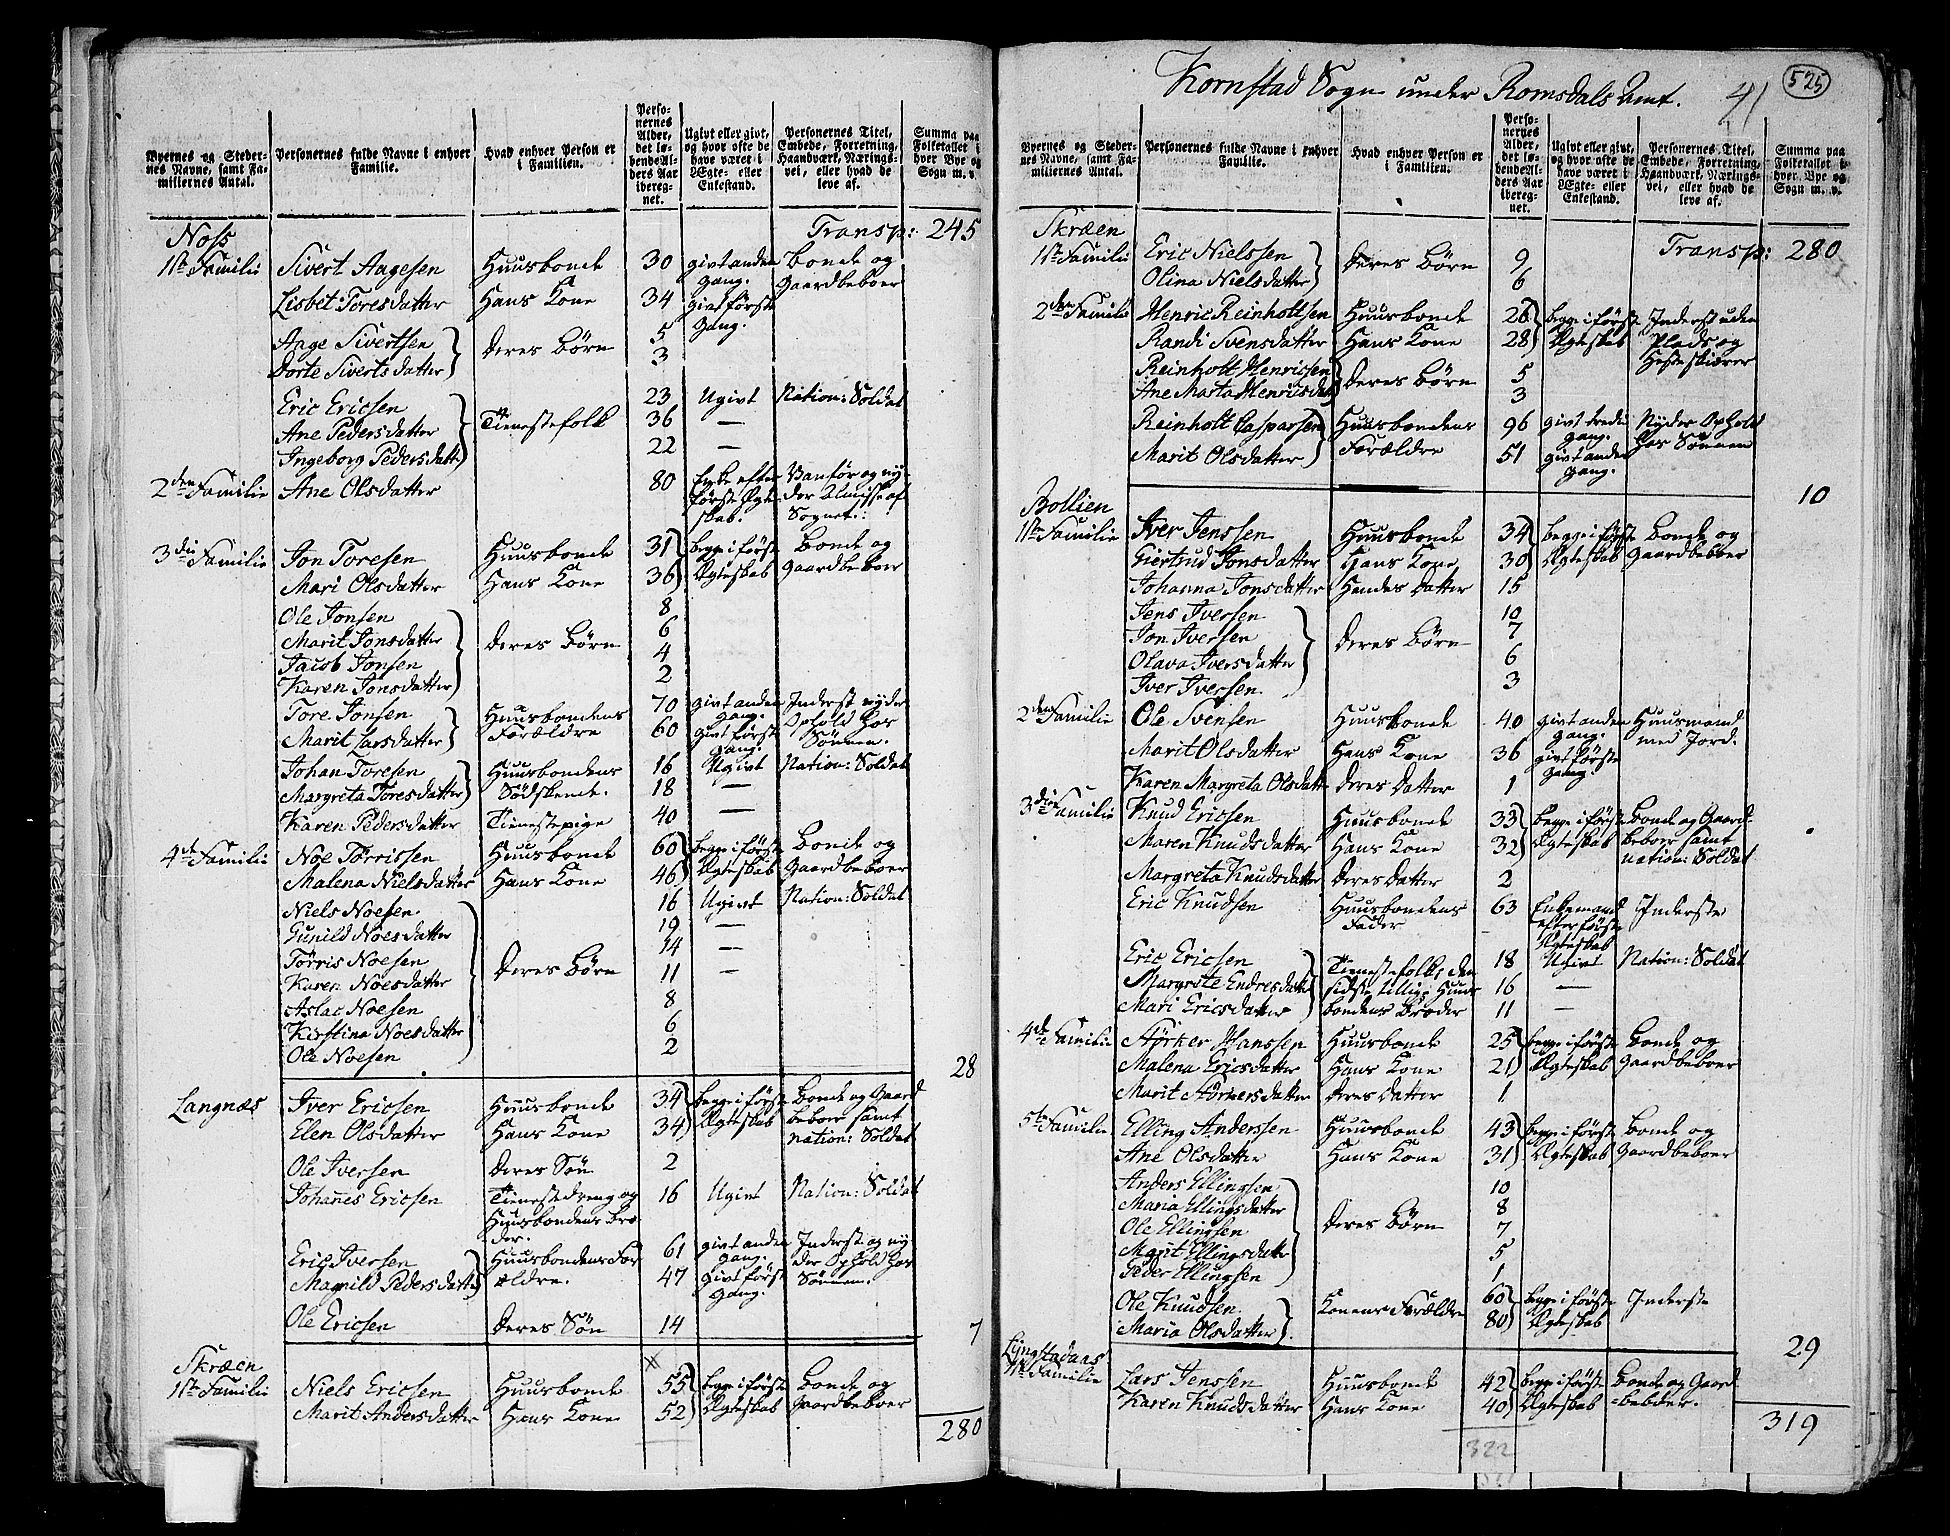 Byernes og Steder-
nes Navne, samt Fa-
miliernes Antal.
Personernes fulde Navne i enhver
Familie.
Hvad enhver Person er
i Familien.
Perso-
nernes
Alder,
det lø-
bende Al-
ders Aar
ibereg-
net.
Ugivt eller givt,
og hvor ofte de
have været i
Ægte- eller
Enkestand.
Personernes Titel,
Embede, Forretning,
Haandværk, Nærings-
vei, eller hvad de
leve af.
Summa paa
Folketallet i
hver Bye og
Sogn m. v.
Transp: 245
Noss
1ste Familie Sivert Aagesen Huusbonde 30 givt anden Gang. Bonde og Gaardbeboer
Lisbet Toresdatter Hans Kone 34 givt første Gang.
Aage Sivertsen } Deres Børn 5
Dorte Sivertsdatter } 3
Eric Ericsen } Tienestefolk 23 Ugivt Nation: Soldat
Ane Pedersdatter } 36 —
Ingeborg Pedersdatt } 22 —
2den Familie Ane Olsdatter 80 Enke efter første Ægteskab. Vanfør og nyder Almisse af Sognet.
3die Familie Jon Toresen Huusbonde 31 } begge i første Bonde og
Mari Olsdatter Hans Kone 36 } Ægteskab Gaardbeboer
Ole Jonsen 8
Marit Jonsdatter } Deres Børn 6
Jacob Jonsen } 4
Karen Jonsdatter } 2
Tore Jonsen } Huusbondens Forældre 70 givt anden Gang. Inderst nyder Ophold hos Sønnen.
Marit Larsdatter } 60 givt første Gang.
Johan Toresen } Huusbondens 16 Ugivt Nation: Soldat
Margreta Toresdatter } Sødskende. 18 —
Karen Pedersdatter Tienestepige 40 —
4de Familie Noe Tørrissen Huusbonde 60 } begge i første Bonde og
Malena Nielsdatter Hans Kone 46 } Ægteskab Gaardbeboer
Niels Noesen 16 Ugivt Nation: Soldat
Gunild Noesdatter 19 —
Tørris Noesen 14 —
Karen Noesdatter Deres Børn 11 —
Aslac Noesen 8
Kirstina Noesdatter 6
Ole Noesen 2
28
Langnæs Iver Ericsen Huusbonde 34 } begge i første Bonde og Gaard
Elen Olsdatter Hans Kone 34 } Ægteskab beboer samt nation: Soldat
Ole Iversen Deres Søn 2
Johanes Ericsen Tienestedreng og Huusbondens Broder. 16 Ugivt Nation: Soldat
Eric Iversen } Huusbondens For 61 givt anden Gang. Inderst og nyder Ophold hos Sønnen.
Magnild Pedersdatter } ældre. 47 givt først Gang.
Ole Ericsen Deres Søn 14
7
Skræen
1ste Familie Niels Ericsen Huusbonde 55 } begge i første Bonde og
Marit Andersdatter Hans Kone 52 } Ægteskab Gaardbeboer
280
Kornstad Sogn under Romsdals Amt. 41
525
Byernes og Steder-
nes Navne, samt Fa-
miliernes Antal.
Personernes fulde Navne i enhver
Familie.
Hvad enhver Person er
i Familien.
Perso-
nernes
Alder,
det lø-
bende Al-
ders Aar
ibereg-
net.
Ugivt eller givt,
og hvor ofte de
have været i
Ægte- eller
Enkestand.
Personernes Titel,
Embede, Forretning,
Haandværk, Nærings-
vei, eller hvad de
leve af.
Summa paa
Folketallet i
hver Bye og
Sogn m. v.
Skræen
Transp: 280
1ste Familie Eric Nielssen } Deres Børn 9
Olina Nielsdatter } 6
2den Familie Henric Reinholtsen Huusbonde 26 } begge i første Inderst uden
Randi Svensdatter Hans Kone 28 } Ægteskab Plads og Hesteskiærer
Reinholt Henricsen } Deres Børn 5
Ane Marta Henricsdat } 3
Reinholt Casparsen } Huusbondens 96 givt tredie Gang. Nyder Ophold hos Sønnen
Marit Olsdatter } Forældre 51 givt anden Gang.
10
Bollien
1ste Familie Iver Jenssen Huusbonde 34 } begge i første Bonde og
Giertrud Jonsdatter Hans Kone 30 } Ægteskab Gaardbeboer
Johanna Jonsdatter Hendes Datter 15
Jens Iversen 10
Jon Iversen } Deres Børn 7
Olava Iversdatter } 6
Iver Iversen } 3
2den Familie Ole Svensen Huusbonde 40 givt anden Gang. Huusmand med Jord.
Marit Olsdatter Hans Kone 36 givt første Gang.
Karen Margreta Olsdatt Deres Datter 1
3die Familie Knud Ericsen Huusbonde 33 } begge i første Bonde og Gaard-
Maren Knudsdatter Hans Kone 32 } Ægteskab beboer samt nation: Soldat
Margreta Knudsdatter Deres Datter 2
Eric Knudsen Huusbondens Fader 63 Enkemand efter første Ægteskab Inderste
Eric Ericsen } Tienestefolk, den 18 Ugivt Nation: Soldat
Margrete Endresdatter } sidste tillige Huus 16 —
Mari Ericsdatter } bondens Broder 11 —
4de Familie Størker Hanssen Huusbonde 25 } begge i første Bonde og
Malena Ericsdatter Hans Kone 21 } Ægteskab Gaardbeboer
Marit Størkersdatter Deres Datter 1
5te Familie Elling Anderssen Huusbonde 43 } begge i første Bonde og
Ane Olsdatter Hans Kone 31 } Ægteskab Gaardbeboer
Anders Ellingsen 10
Maria Ellingsdatter 8
Ole Ellingsen Deres Børn 7
Marit Ellingsdatter 5
Peder Ellingsen 1
Ole Knudsen } Konens Forældre 60 } begge i første Inderste
Maria Olsdatter } 80 } Ægteskab
29
Lyngstadaas
1ste Familie Lars Jenssen Huusbonde 42 } begge i første Bonde og Gaard
Karen Knudsdatter Hans Kone 40 } Ægteskab =beboer.
319
322